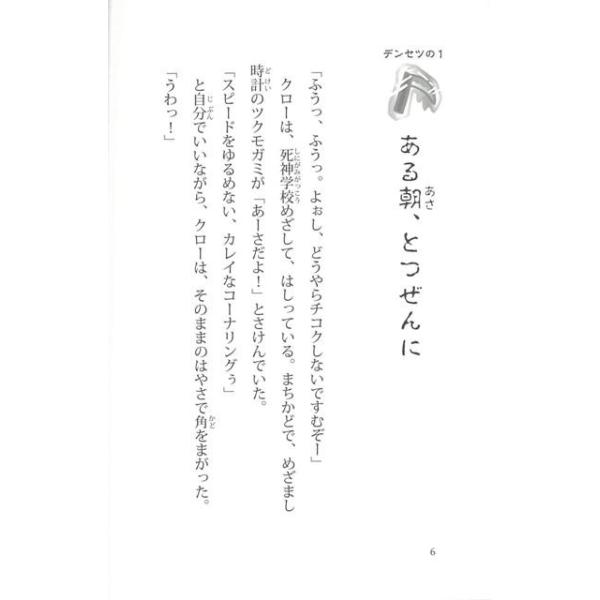 デンセツの1
ある朝、とつぜんに
あさ
「ふうっ、ふうっ。よぉし、どうやらチコクしないですむぞー」
クローは、死神学校めざして、はしっている。まちかどで、めざまし
しにがみがっこう
時計のツクモガミが「あーさだよ！」とさけんでいた。
どけい
「スピードをゆるめない、カレイなコーナリングぅ」
と自分でいいながら、クローは、そのままのはやさで角をまがった。
じぶん
かど
「うわっ！」
6